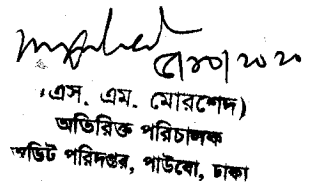 ৫/১০/২০২০
(এস. এম. মোরশেদ)
অতিরিক্ত পরিচালক
অডিট পরিদপ্তর, পাউবো, ঢাকা